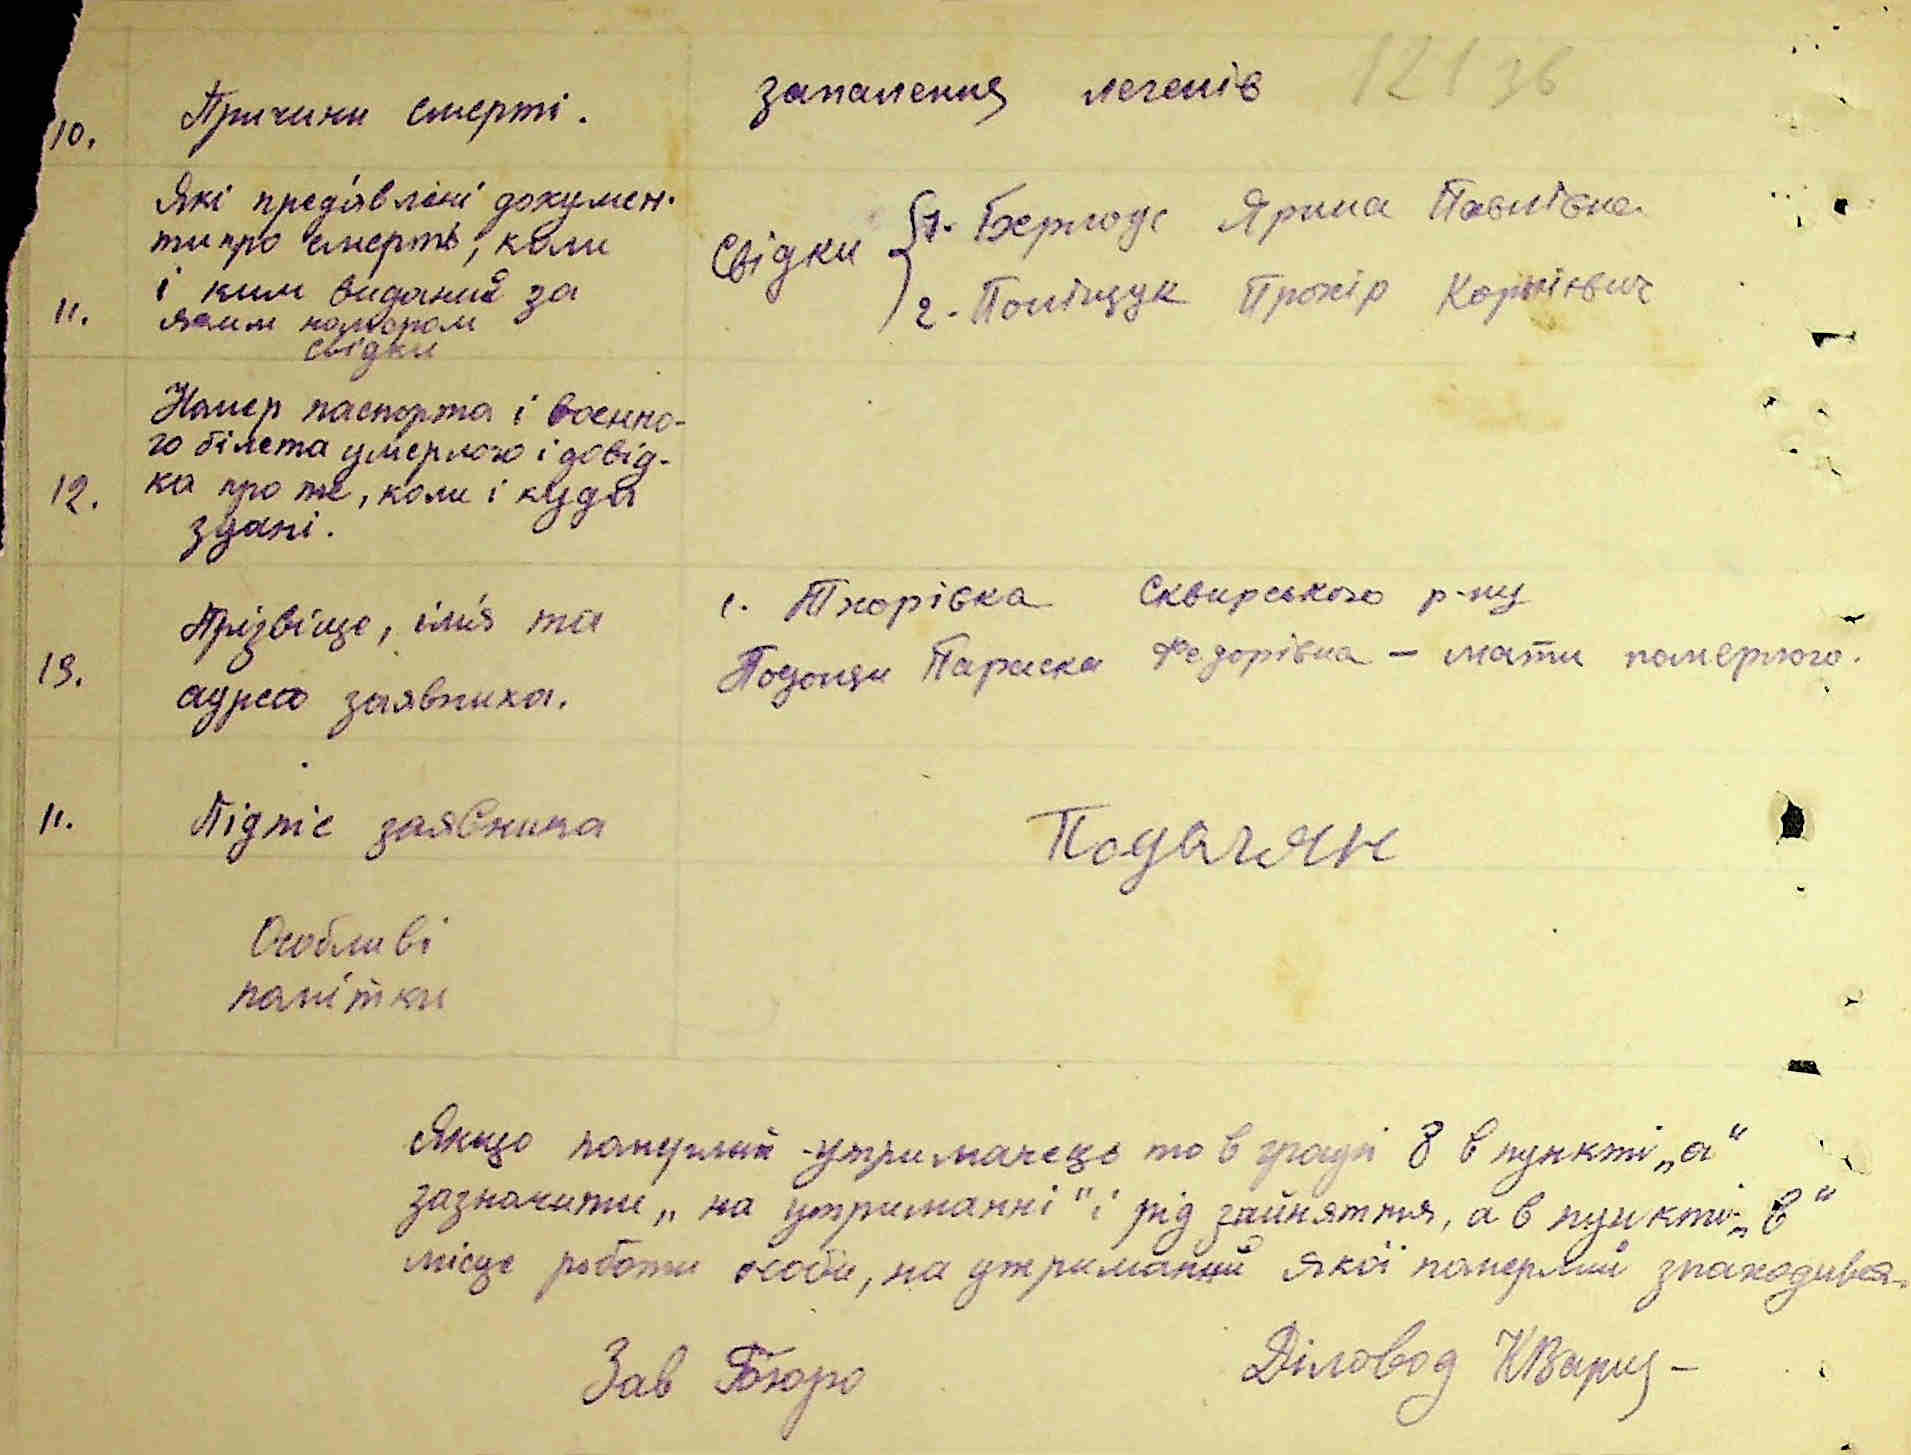 121 зв
10. Причини смерті. запалення легенів
11. Які предъявлені докумен-
ти про смерть, коли
і ким виданий за
яким номером
свідки
Свідки { 1. Берлодс Ярина Павлівна
2. Поліщук Прохір Корнієвич
12. Номер паспорта і военно-
го білета умерлого і довід-
ка про те, коли і куда
здані.
13. Прізвіще, імя та
адреса заявника.
с. Тхорівка Сквирського р-ну
Параска Федорівна - мати померлого.
11. Підпіс заявника
Особливі
помітки
Якщо померлий - утриманець то в графі 8 в пункті „а“
зазначити „на утриманні“ і рід зайняття, а в пункті „в“
місце роботи особи, на утриманий якої померлий знаходився.
Зав Бюро Діловод